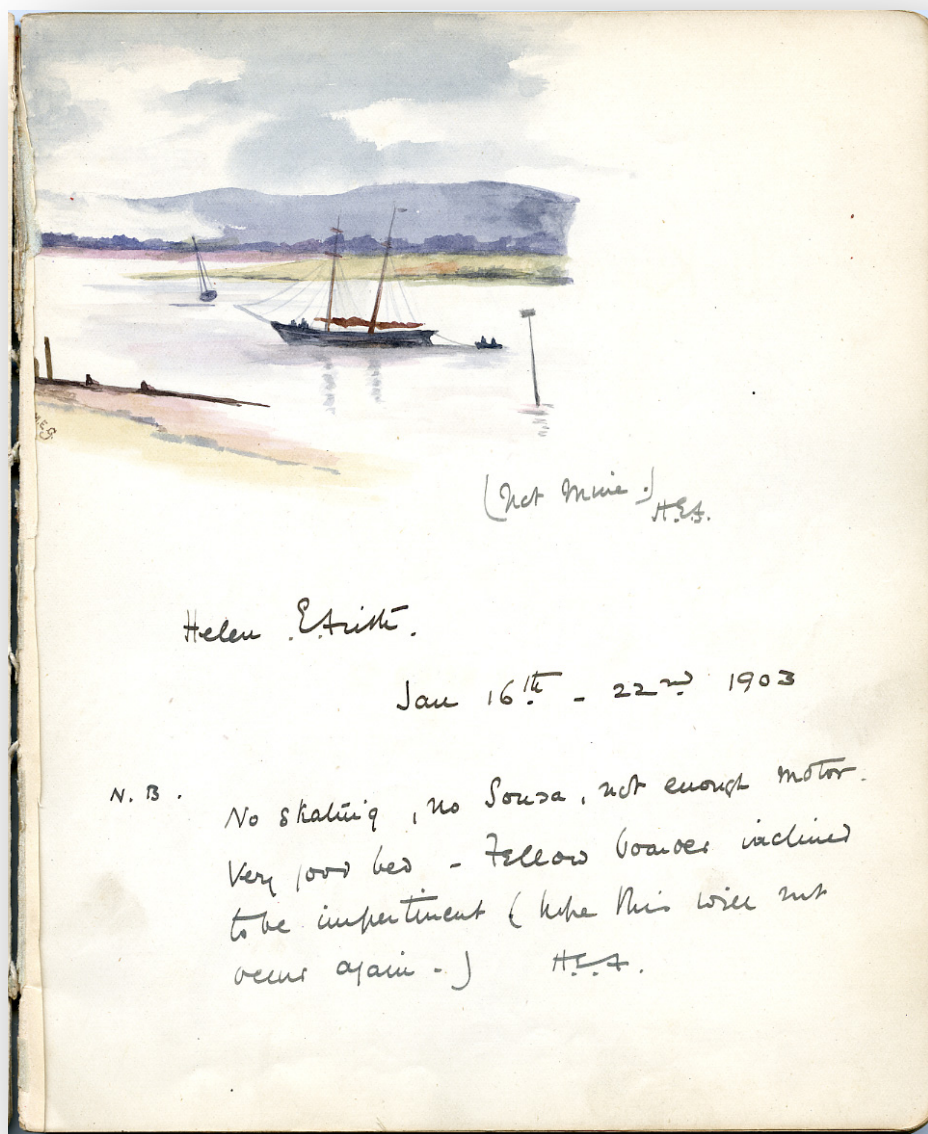 (Not Mine.)
H.E.F.
Helen E.
Jan 16th - 22nd 1903
N.B. No skating, no Sousa, not enough motor.
Very good bed - Fellow boarder inclined
to be impertinent (hope this will not
occur again -) H.E.F.